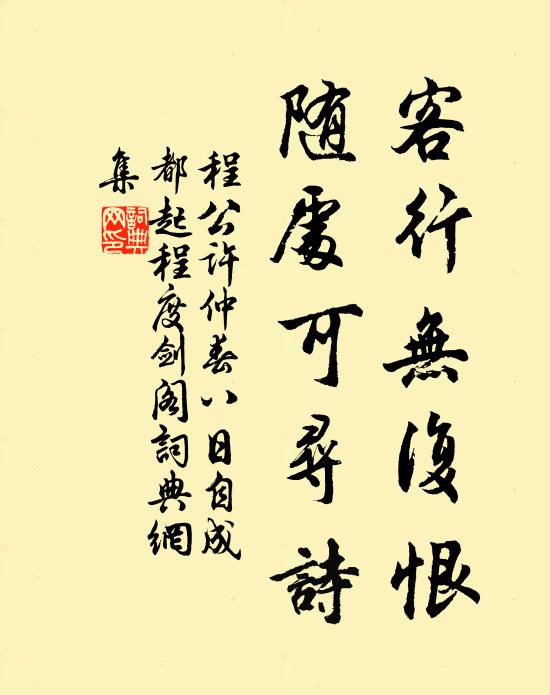 客行無復恨
隨處可尋詩
程公許仲春八日自成
都起程度劍閣詞典網
集
詞典
网印